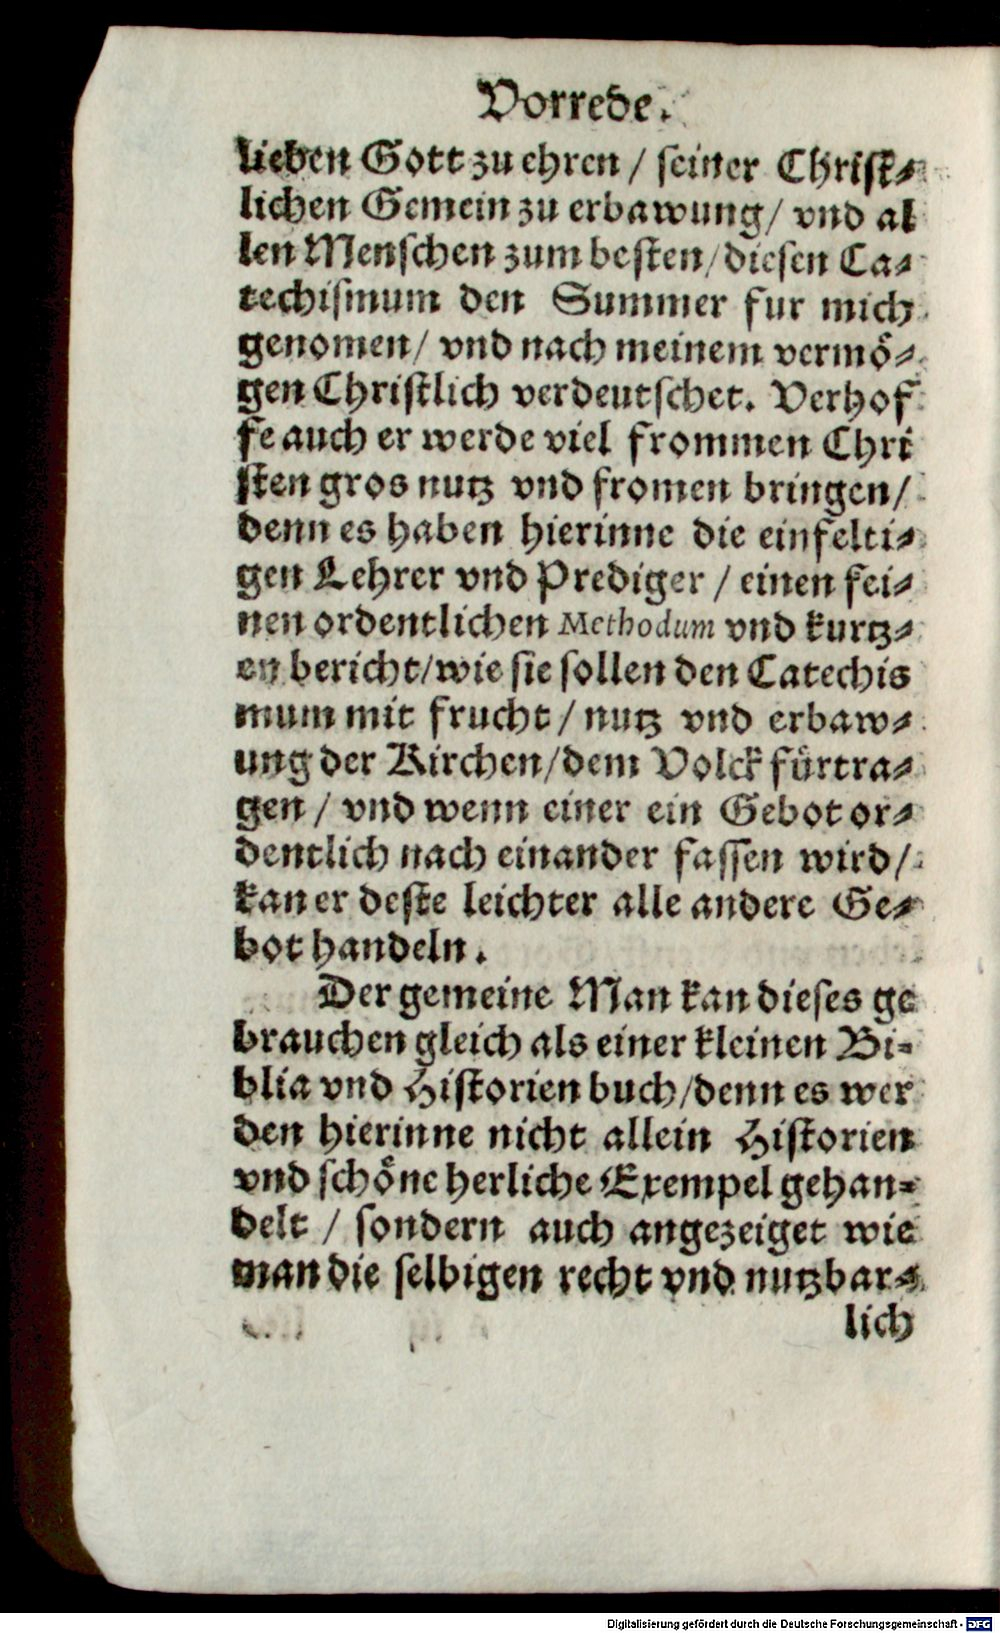 Vorrede.
lieben Gott zu ehren / seiner Christ⸗
lichen Gemein zu erbawung/ vnd al
len Menschen zum besten/diesen Ca⸗
techismum den Summer fur mich
genomen/ vnd nach meinem vermö⸗
gen Christlich verdeutschet. Verhof
fe auch er werde viel frommen Chri
sten gros nutz vnd fromen bringen/
denn es haben hierinne die einfelti⸗
gen Lehrer vnd Prediger / einen fei⸗
nen ordentlichen Methodum vnd kurtz⸗
en bericht/wie sie sollen den Catechis
mum mit frucht / nutz vnd erbaw⸗
ung der Kirchen/dem Volck fürtra⸗
gen / vnd wenn einer ein Gebot or⸗
dentlich nach einander fassen wird/
kan er deste leichter alle andere Ge⸗
bot handeln.
Der gemeine Man kan dieses ge
brauchen gleich als einer kleinen Bi⸗
blia vnd Historien buch/denn es wer
den hierinne nicht allein Historien
vnd schöne herliche Exempel gehan⸗
delt / sondern auch angezeiget wie
man die selbigen recht vnd nutzbar⸗
lich
Digitalisierung gefördert durch die Deutsche Forschungsgemeinschaft - DFG